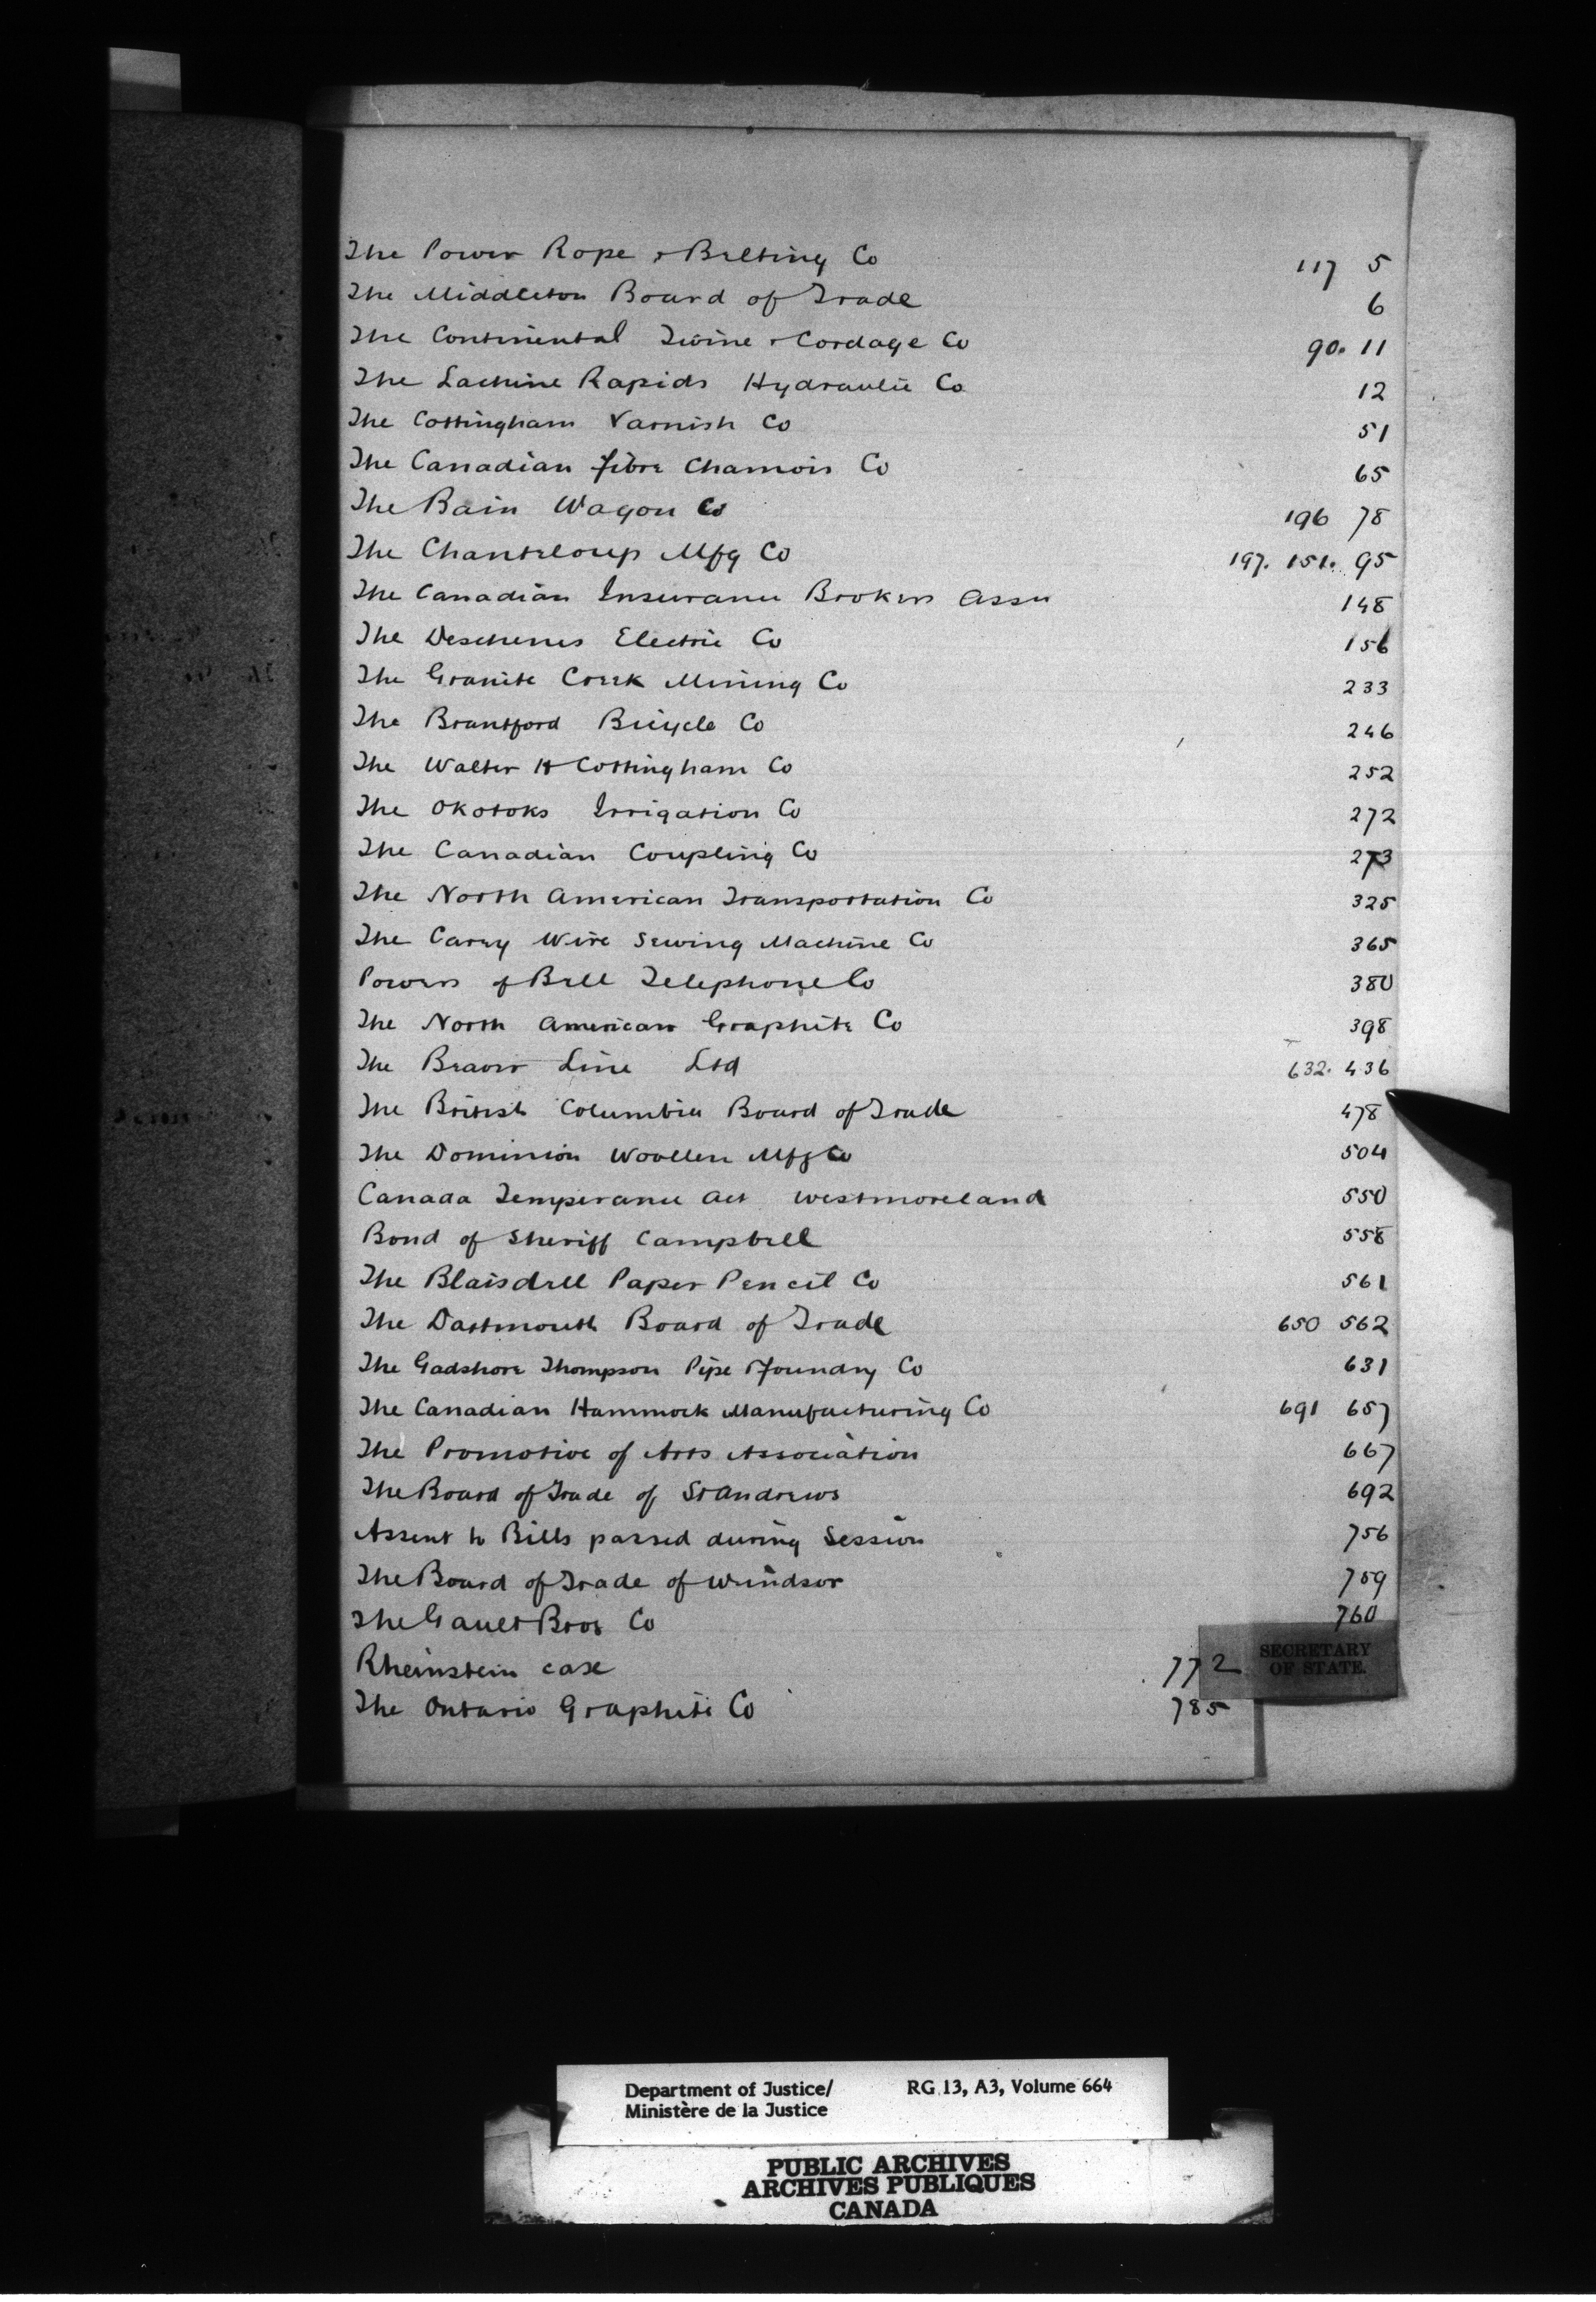 The Power Rope & Belting Co 117 5
The Middleton Board of Trade 6
The Continental Twine & Cordage Co 90. 11
The Lachine Rapids Hydraulic Co 12
The Cottingham Varnish Co 51
The Canadian Fibre Chamois Co 65
The Bain Wagon Co 196 78
The Chanteloup Mfg Co 197. 151. 95
The Canadian Insurance Brokers Assn 148
The Deschenes Electric Co 156
The Granite Creek Mining Co 233
The Brantford Bicycle Co 246
The Walter H Cottingham Co 252
The Okotoks Irrigation Co 272
The Canadian Coupling Co 273
The North American Transportation Co 325
The Carey Wire Sewing Machine Co 365
Powers of Bell Telephone Co 380
The North American Graphite Co 398
The Beaver Line Ltd 632. 436
The British Columbia Board of Trade 478
The Dominion Woollen Mfg Co 504
Canada Temperance Act Westmoreland 550
Bond of Sheriff Campbell 558
The Blaisdell Paper Pencil Co 561
The Dartmouth Board of Trade 650 562
The Gadshore Thompson Pipe Foundry Co 631
The Canadian Hammock Manufacturing Co 691 657
The Promotive of Arts Association 667
The Board of Trade of St Andrews 692
Assent to Bills passed during Session 756
The Board of Trade of Windsor 759
The Gault Bros Co 760
Rheinstein case 772
SECRETARY
OF STATE.
The Ontario Graphite Co 785
Department of Justice/ RG 13, A3, Volume 664
Ministère de la Justice
PUBLIC ARCHIVES
ARCHIVES PUBLIQUES
CANADA